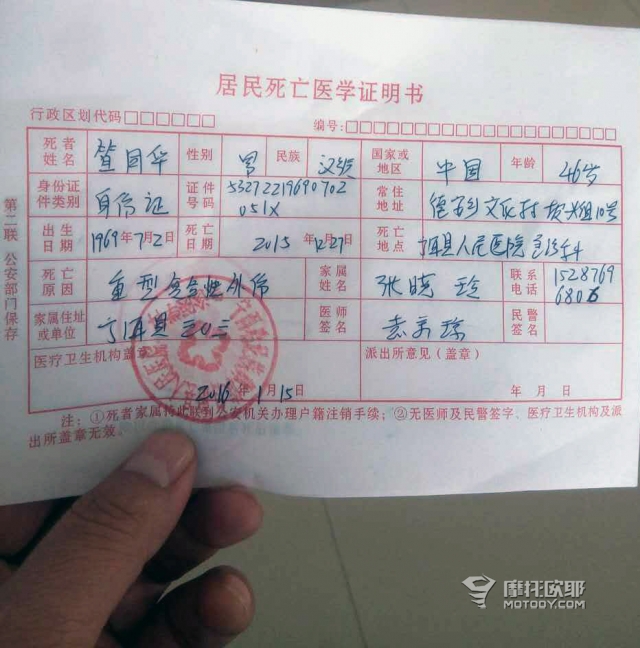 居民死亡医学证明书
行政区划代码□□□□□□
编号:□□□□□□□□□□□□□□□□□
第二联 公安部门保存
死者姓名 国华 性别 男 民族 汉族 国家或地区 中国 年龄 46岁
身份证件类别 身份证 证件号码 53272219690702051X 常住地址 德安乡文化村 组10号
出生日期 1969年7月2日 死亡日期 2015年12月27日 死亡地点 洱县人民医院急诊科
死亡原因 重型复合性外伤 家属姓名 张晓玲 联系电话 1528769680
家属住址或单位 宁洱县 医师签名 民警签名
医疗卫生机构盖章 派出所意见(盖章)
2016年1月15日 年 月 日
注:①死者家属持此联到公安机关办理户籍注销手续;②无医师及民警签字、医疗卫生机构及派
出所盖章无效。
摩托欧耶
MOTOOY.COM